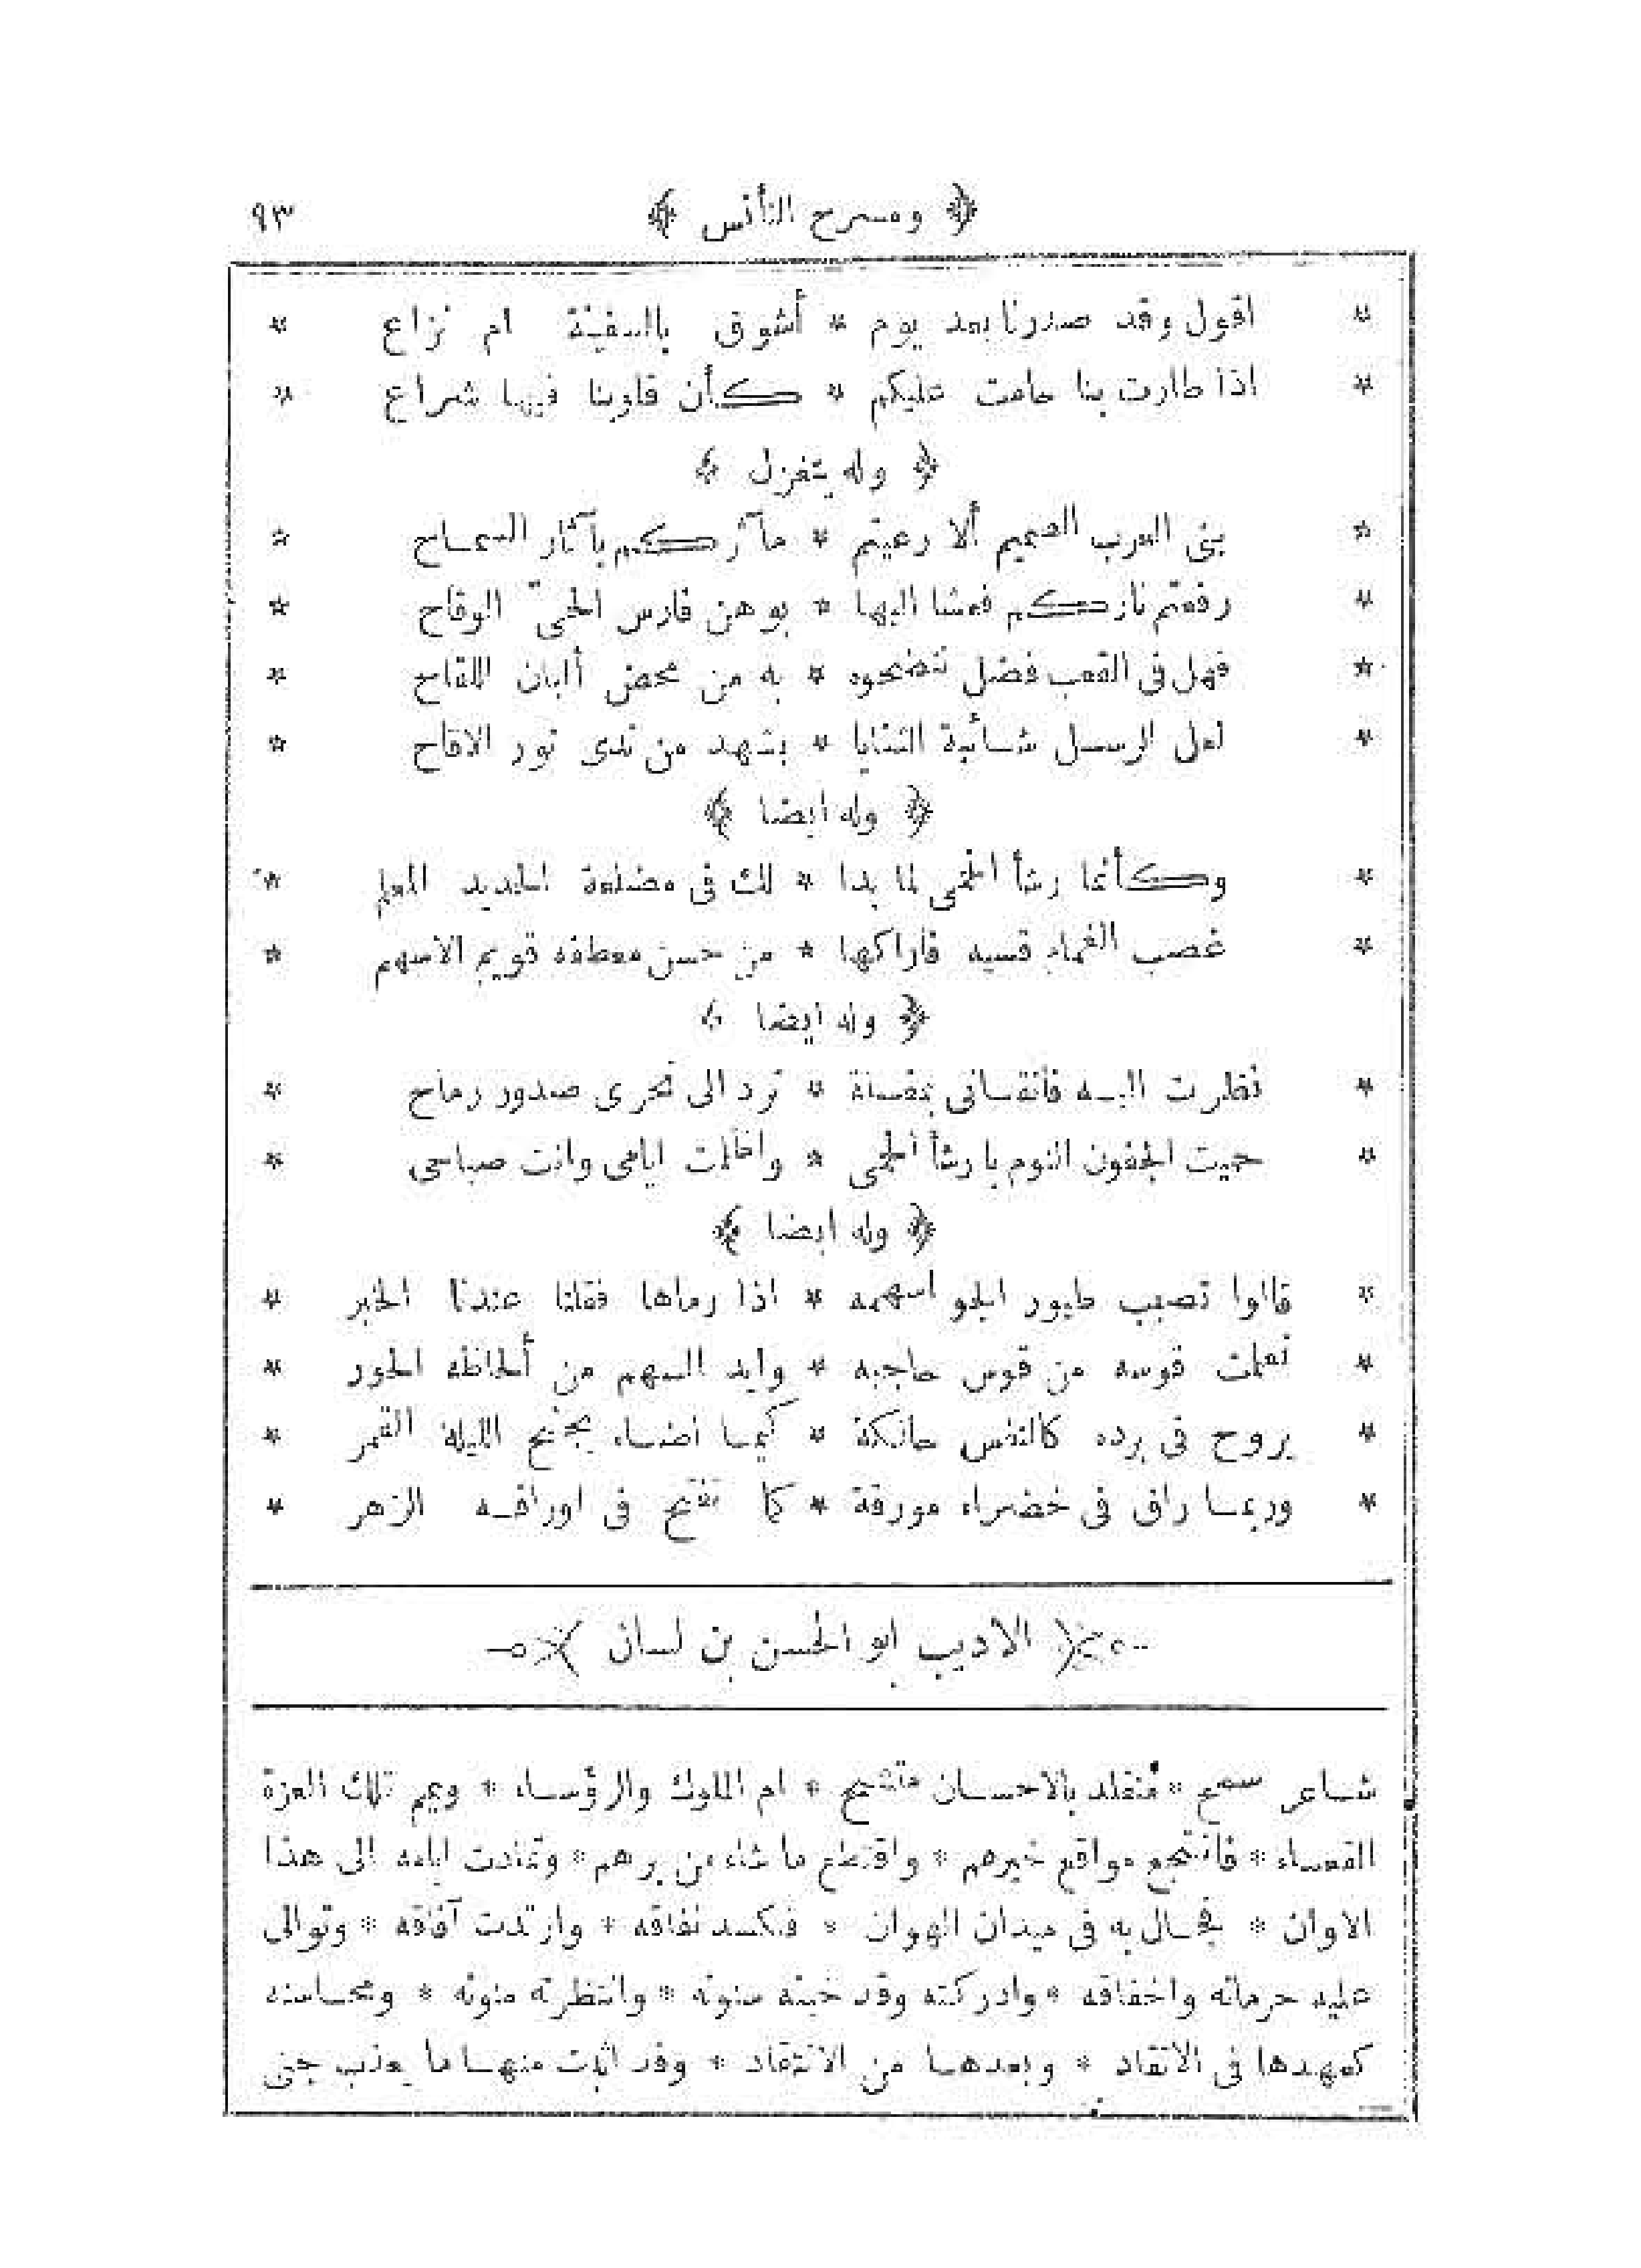 ﴿ ومسرح التأنس ﴾ ٩٣
* اقول وقد صدرنا بعد يوم * أشوق بالسفينة ام نزاع *
* اذا طارت بنا حامت عليكم * كأن قلوبنا فيها شراع *
﴿ وله يتغزل ﴾
* بنى العرب الصميم ألا رعيتم * مآثركم بآثار السماح *
* رفعتم ناركم فعشا اليها * بوهن فارس الحىّ الوقاح *
* فهل فى القعب فضل تنضحوه * به من محض ألبان اللقاح *
* لعل الرسل شائبة الثنايا * بشهد من ندى نور الاقاح *
﴿ وله ايضا ﴾
* وكأنما رشأ الحمى لما بدا * لك فى مضلعة الحديد المعلم *
* غصب الغمام قسيه فاراكها * من حسن معطفه قويم الاسهم *
﴿ وله ايضا ﴾
* نظرت اليه فاتقانى بمقلة * ترد الى نحرى صدور رماح *
* حميت الجفون النوم يا رشأ الحمى * واظلمت ايامى وانت صباحى *
﴿ وله ايضا ﴾
* قالوا تصيب طيور الجو اسهمه * اذا رماها فقلنا عندنا الخبر *
* تعلمت قوسه من قوس حاجبه * وايد السهم من ألحاظه الحور *
* يروح فى برده كالنقس حالكة * كما اضاء بجنح الليلة القمر *
* وربما راق فى خضراء مورقة * كما تفتح فى اوراقه الزهر *
﴿ الاديب ابو الحسن بن لسان ﴾
شاعر سمح * متقلد بالاحسان متشح * ام الملوك والرؤساء * ويمم تلك العزة
القعساء * فانتجع مواقع خيرهم * واقتطع ما شاء من برهم * وتمادت ايامه الى هذا
الاوان * فجال به فى ميدان الهوان * فكسد نفاقه * وارتدت آفاقه * وتوالى
عليه حرمانه واخفاقه * وادركته وقد خبنته سنونه * وانتظرته منونه * ومحاسنه
كعهدها فى الاتقاد * وبعدها من الانتقاد * وقد اثبت منها ما يعذب جنى